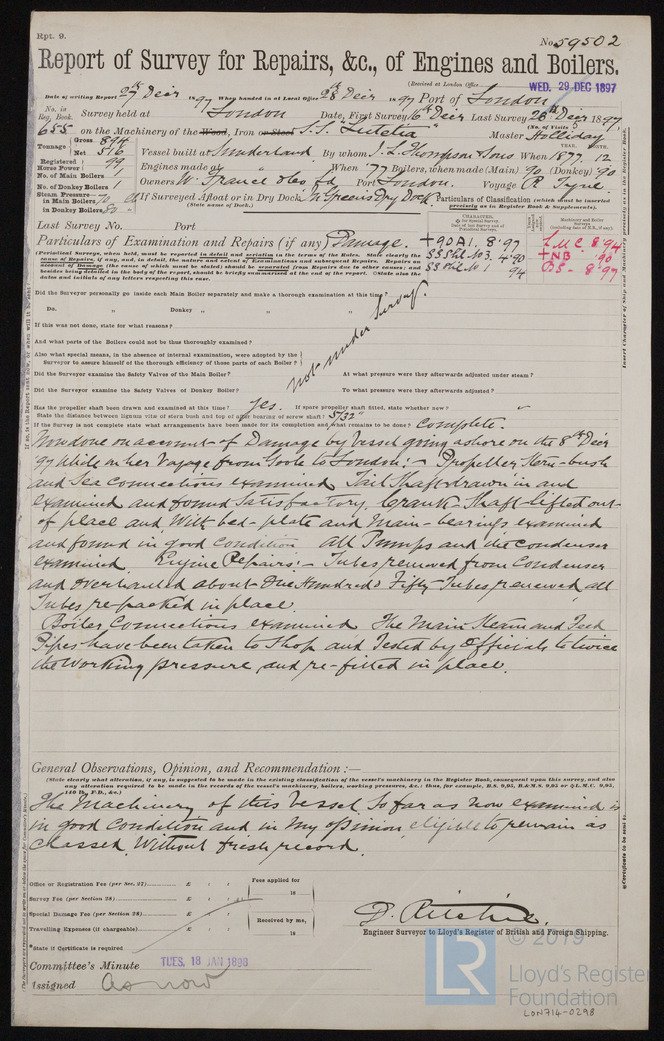 Rpt. 9.
No. 59502
Report of Survey for Repairs, &c., of Engines and Boilers.
(Received at London Office WED. 29 DEC 1897
Date of writing Report 27th Decr 1897 When handed in at Local Office 28th Decr 1897 Port of London
No. in Reg. Book. Survey held at London Date, First Survey 16th Decr Last Survey 28th Decr 1897
(No. of Visits
655 on the Machinery of the Wood, Iron or Steel S.S. "Lutetia" Master Holliday
Tonnage Gross 894 Net 516 Vessel built at Sunderland By whom J. L. Thompson & Sons When 1877. 12
YEAR. MONTH.
Registered Horse Power 99 Engines made at " When '77 Boilers, when made (Main) 90 (Donkey) '90
No. of Main Boilers
No. of Donkey Boilers 1 Owners W. France & Co Ld Port London. Voyage R. Tyne.
Steam Pressure in Main Boilers 70 in Donkey Boilers 80 If Surveyed Afloat or in Dry Dock In Green's Dry Dock
(State name of Dock.)
Particulars of Classification (which must be inserted precisely as in Register Book & Supplements).
Last Survey No. Port
CHARACTER.
Particulars of Examination and Repairs (if any) Damage.
+90A1. 8.97
SS Shl. No 3. 4.90
SS Shl. No 1 94
L.M.C. 8.94
+NB .90
B.S. 8.97
(Periodical Surveys, when held, must be reported in detail and seriatim in the terms of the Rules. State clearly the
cause of Repairs, if any, and, in detail, the nature and extent of Examinations and subsequent Repairs. Repairs on
account of Damage (the cause of which must be stated) should be separated from Repairs due to other causes; and
besides being detailed in the body of the report, should be briefly summarised at the end of the report. State also the
dates and initials of any letters respecting this case.
Did the Surveyor personally go inside each Main Boiler separately and make a thorough examination at this time?
Do. " Donkey " " " "
If this was not done, state for what reasons?
And what parts of the Boilers could not be thus thoroughly examined?
not under Survey.
Also what special means, in the absence of internal examination, were adopted by the
Surveyor to assure himself of the thorough efficiency of those parts of each Boiler?
Did the Surveyor examine the Safety Valves of the Main Boiler? At what pressure were they afterwards adjusted under steam?
Did the Surveyor examine the Safety Valves of Donkey Boiler? To what pressure were they afterwards adjusted?
Has the propeller shaft been drawn and examined at this time? Yes. If spare propeller shaft fitted, state whether new? "
State the distance between lignum vitæ of stern bush and top of after bearing of screw shaft? 5/32"
If the Survey is not complete state what arrangements have been made for its completion and what remains to be done? Complete.
Now done on account of Damage by Vessel going ashore on the 8th Decr
'97 While on her Voyage from Goole to London:- Propeller, Stern-bush
and Sea Connections examined Tail Shaft drawn in and
examined and found Satisfactory, Crank-Shaft lifted out
of place and With bed-plate and Main-bearings examined
and found in good Condition. All Pumps and the Condenser
examined. Engine Repairs:- Tubes removed from Condenser
and overhauled about One Hundred & Fifty Tubes renewed all
Tubes re-packed in place.
Boiler Connections examined The Main Steam and Feed
Pipes have been taken to Shop and Tested by Officials to twice
the Working pressure and re-fitted in place.
General Observations, Opinion, and Recommendation:—
(State clearly what alteration, if any, is suggested to be made in the existing classification of the vessel's machinery in the Register Book, consequent upon this survey, and also
any alteration required to be made in the records of the vessel's machinery, boilers, working pressures, &c.: thus, for example, B.S. 9,95, B.&M.S. 9,95 or +L.M.C. 9,95,
140 lb., F.D., &c.)
The Machinery of this Vessel So far as now examined is
in good Condition and in my opinion eligible to remain as
Classed, Without fresh record.
Office or Registration Fee (per Sec. 27) £
Survey Fee (per Section 28) £
Special Damage Fee (per Section 28) £
Travelling Expenses (if chargeable) £
Fees applied for
18
Received by me,
18
D. Ritchie.
Engineer Surveyor to Lloyd's Register of British and Foreign Shipping.
*State if Certificate is required
Committee's Minute TUES. 18 JAN 1898
Assigned As now
© 2019
LR
Lloyd's Register
Foundation
LON714-0298